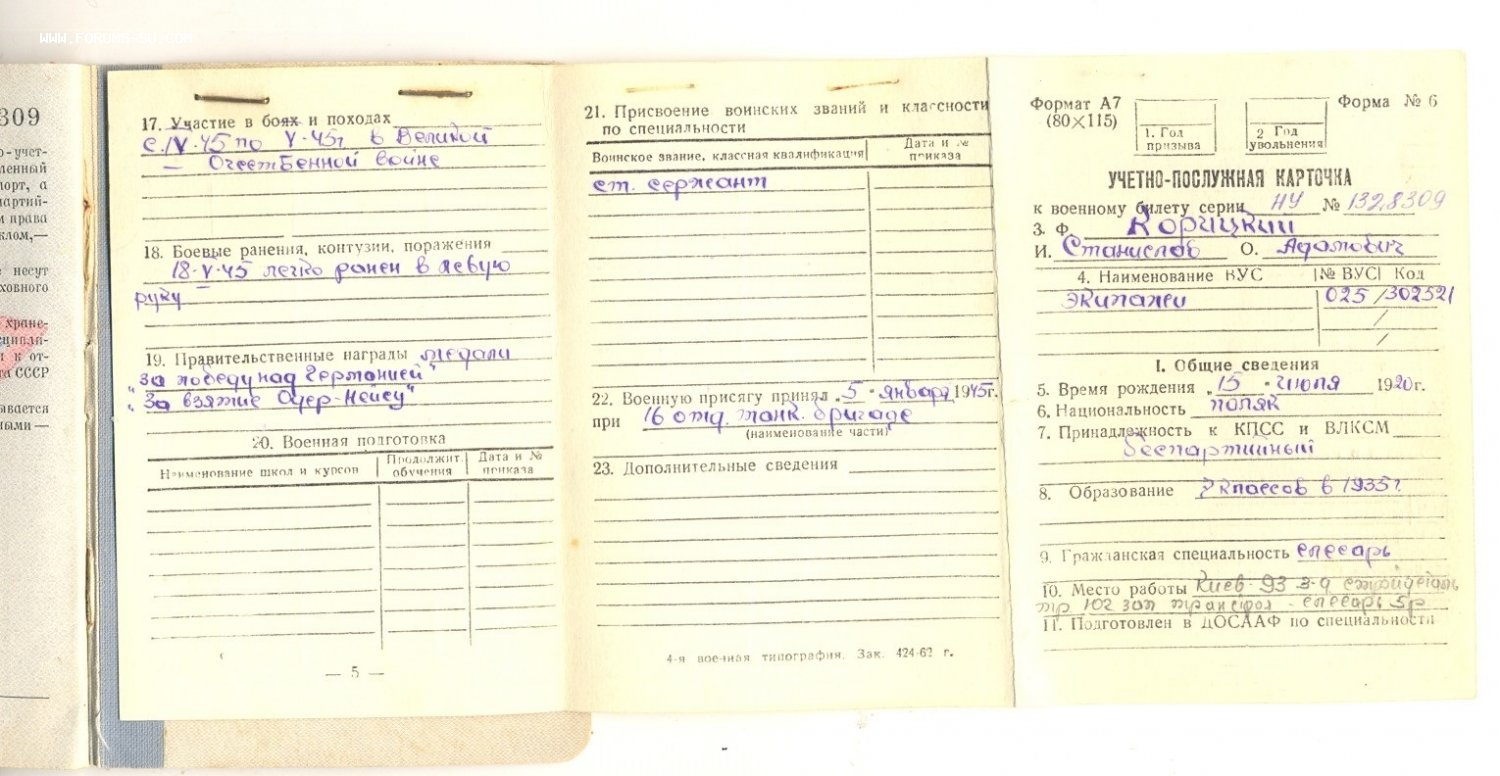 WWW.FORUMS-SU.COM
309
о-учет-
менный
порт, а
партий-
и права
клом,—
несут
ховного
хране-
к от-
та СССР
ывается
ными —
17. Участие в боях и походах
с IV.45 по V-45г в Великой
— Очественной войне
18. Боевые ранения, контузии, поражения
18-V-45 легко ранен в левую
руку
19. Правительственные награды медали
"За победу над Германией"
"За взятие Одер-Нейсу"
20. Военная подготовка
Наименование школ и курсов
Продолжит. обучения
Дата и № приказа
— 5 —
21. Присвоение воинских званий и классности
по специальности
Воинское звание, классная квалификация
Дата и № приказа
ст. сержант
22. Военную присягу принял „5" января 1945г.
при 16 отд. танк. бригаде
(наименование части)
23. Дополнительные сведения
4-я военная типография. Зак. 424-62 г.
Формат А7
(80×115)
Форма № 6
1. Год
призыва
2 Год
увольнения
УЧЕТНО-ПОСЛУЖНАЯ КАРТОЧКА
к военному билету серии НУ № 1328309
3. Ф. Корицкий
И. Станислав О. Адамович
4. Наименование ВУС № ВУС Код
Экипажи 025/302521
/
/
I. Общие сведения
5. Время рождения „15" июля 1920г.
6. Национальность поляк
7. Принадлежность к КПСС и ВЛКСМ
беспартийный
8. Образование 7 классов в 1935г.
9. Гражданская специальность слесарь
10. Место работы Киев-93 з-д
тр 102 слесарь 5р
11. Подготовлен в ДОСААФ по специальности